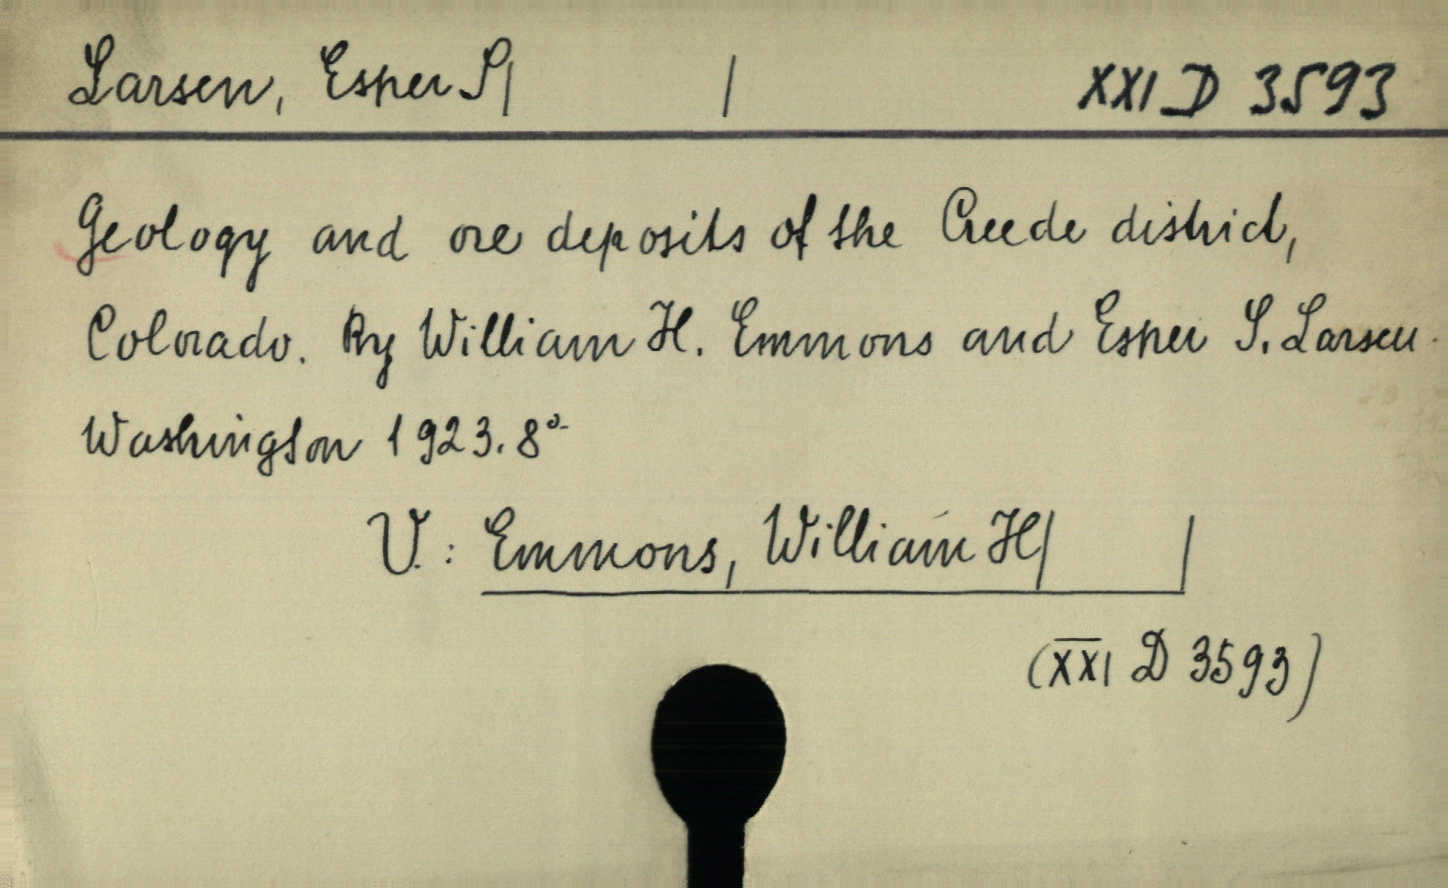 Larsen, Esper S| | XXI D 3593
Geology and ore deposits of the Creede district,
Colorado. By William H. Emmons and Esper S. Larsen.
Washington 1923. 8°
V.: Emmons, William H| |
(XXI D 3593)